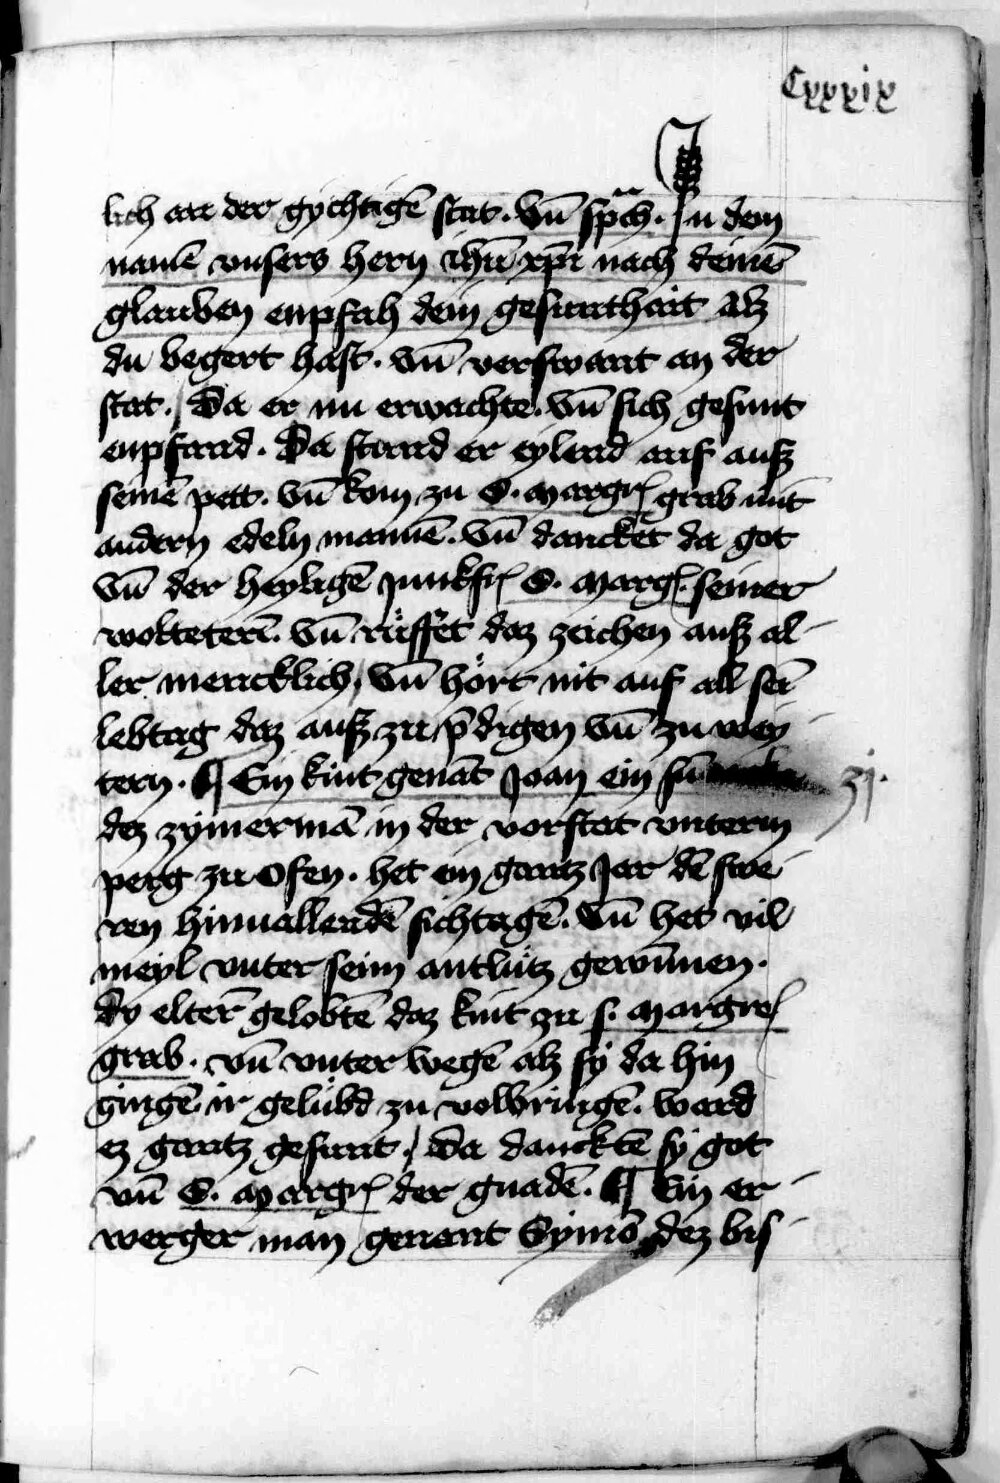 Cxxxix
lich an der gychtigē stat. Vn̄ sp̈ach. In dem
namē vnsers hern ihū xp̄i nach deinē
glauben enpfah dein gesunthait Alz
du begert hast. Vn̄ verswant an der
stat. Da er nu erwachte. Vn̄ sich gesunt
enpfand. Da stund er eylend auf auß
seinē pett. Vn̄ kom zu S. Margr̄ grab mit
andern edeln mannē. Vn̄ dancket da got
Vn̄ der heyligē junkfr̄ S. Marḡ. seiner
wolteterī. Vn̄ rüffet daz zeichen auß al-
ler mericklich, Vn̄ hört nit auf all sei
lebtag daz auß zu p̄digen Vn̄ zu wey-
tern. ¶ Ein kint genāt Joan ein sū
dez zymermā in der vorstat vnterm
perg zu Ofen. het ein gantz Jar dē swe-
ren hinuallendē sichtagē. Vn̄ het vil
meyl vnter seim antlütz gewun̄en.
dy elter̄ gelobtē daz kint zu s. Margre
grab. vn̄ vnter wegē alz sy da hin
gingē ir gelübd zu volbringē. ward
ez gantz gesunt, Da dancktē sy got
vn̄ S. Margr̄ der gnadē. ¶ Ein er-
werger man genant Symō dez bis-
zj.